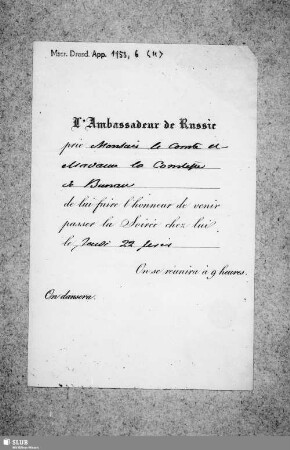 Mscr. Dresd. App. 1958, 6 (11)
L'Ambassadeur de Russie
prie Monsieur le Comte et
Madame la Comtesse
de Bunau
de lui faire l'honneur de venir
passer la Soirée chez lui,
le Jeudi 22
On se réunira à 9 heures.
On dansera.
SLUB